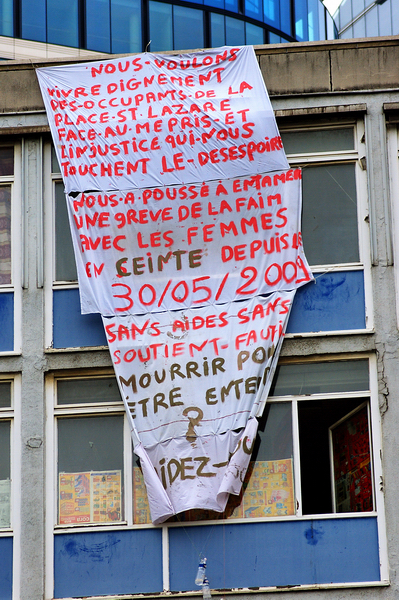 NOUS-VOULONS
VIVRE DIGNEMENT
DES-OCCUPANTS-DE LA
PLACE-ST-LAZARE
FACE-AU-MEPRIS-ET
L'INJUSTICE-QUI-NOUS
TOUCHENT LE-DESESPOIR
NOUS-A-POUSSÉ-À-ENTAMER
UNE GREVE DE LA FAIM
AVEC LES-FEMMES
EN CEINTE DEPUIS LE
30/05/2009
SANS AIDES SANS
SOUTIENT-FAUT
MOURRIR POU
ÊTRE ENTE
?
IDEZ-